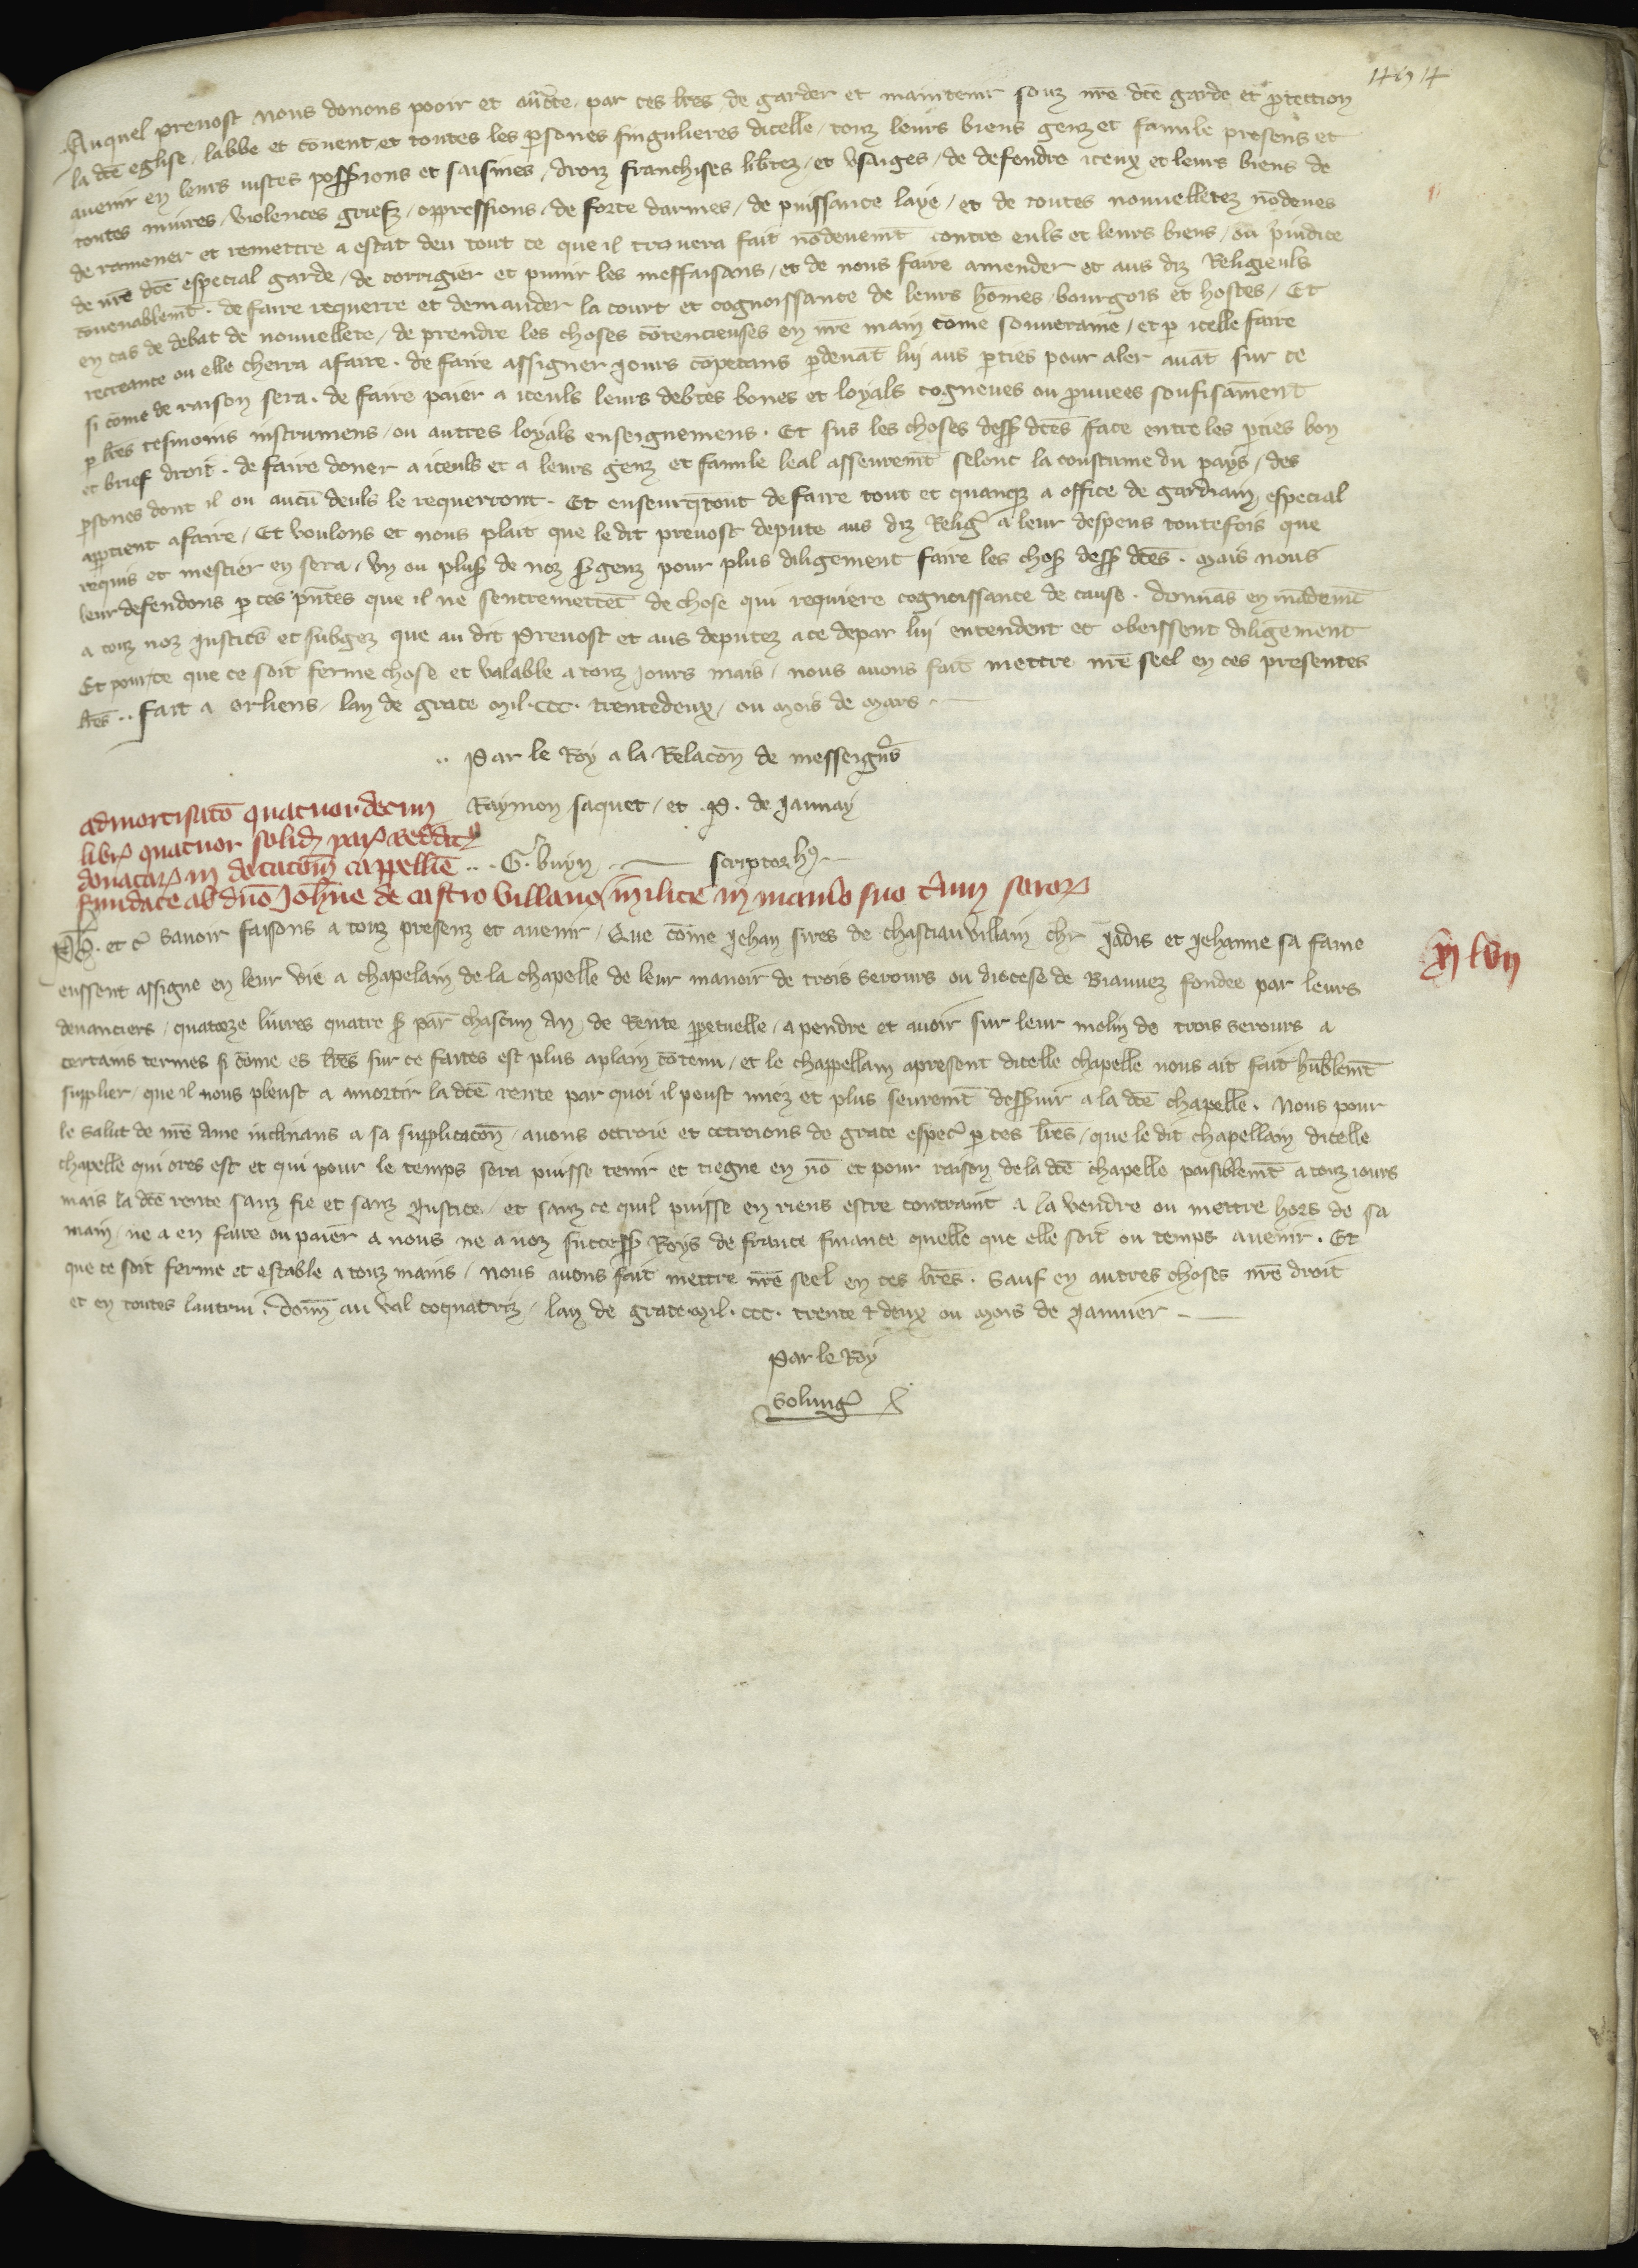 Auquel prevost nous donons pooir et auctte par ces lres de garder et maintenir souz nre dce garde et protection
la dce eglise, labbe et covent et toutes les psones singulieres dicelle, touz leurs biens genz et famile presens et
avenir en leurs iustes possessions et saisines, droiz franchises libtez, et usaiges, de defendre iceux et leurs biens de
toutes iniures, violences griefz, oppressions, de force darmes, de puissance laye, et de toutes nouvelletez nodeues
de ramener et remettre a estat deu tout ce que il trouvera fait nodeuemt contre euls et leurs biens, ou preiudice
de nre dce especial garde, de corrigier et punir les meffaisans, et de nous faire amender et aus diz Religieuls
covenablemt. de faire requerre et demander la court et cognoissance de leurs homes, bourgois et hostes, Et
en cas de debat de nouvellete, de prendre les choses cotencieuses en nre main come souveraine, et p icelle faire
recreance ou elle cherra a faire. de faire assigner jours copetans pdevat lui aus pties pour aler avat sur ce
si come de raison sera. de faire paier a iceuls leurs debtes bones et loyals cogneues ou prouvees soufisament
p lres tesmoins instrumens, ou autres loyals enseignemens. Et sus les choses dess dces face entre les pties bon
et brief droit. de faire doner a iceuls et a leurs genz et famile leal asseuremt selonc la coustume du pays, des
psones dont il ou aucu deuls le requerront. Et enseurqtout de faire tout et quanq a office de gardiain especial
apptient a faire, Et voulons et nous plait que le dit prevost depute aus diz Relig a leur despens toutefois que
requis et mestier en sera, un ou plus de noz sgenz pour plus diligement faire les chos dess dces. Mais nous
leur defendons p ces pntes que il ne sentremettet de chose qui requiere cognoissance de cause. donnas en mademt
a touz noz justics et subgez que au dit Prevost et aus deputez a ce depar lui entendent et obeissent diligement
Et pour ce que ce soit ferme chose et valable a touz jours mais, nous avons fait mettre nre seel en ces presentes
lres.. fait a orliens, lan de grace mil.ccc. trentedeux, ou mois de mars.
.. Par le Roy a la Relacon de messeigns
Raymon saquet, et .P. de jaunay
.. G. buyn scriptor h9
admortisaco quatuordecim
libr quatuor solid par reddit
donatar in dotacom cappellie
fundate ab dno Johne de castro villano milite in manio suo trium soror
Ph. et c Savoir faisons a touz presenz et avenir, Que come jehan sires de chastiauvillain chr jadis et jehanne sa fame
eussent assigne en leur vie a chapelain de la chapelle de leur manoir de trois serours ou diocese de Biauvez fondee par leurs
devanciers, quatorze livres quatre s par chascun an de Rente ppetuelle, a pendre et avoir sur leur molin de trois serours a
certains termes si come es lres sur ce faites est plus aplain cotenu, et le chappellain apresent dicelle chapelle nous ait fait humblemt
supplier, que il nous pleust a amortir la dce rente par quoi il peust miez et plus seuremt desservir a la dce chapelle. Nous pour
le salut de nre ame inclinans a sa supplicacon, avons ottroie et ottroions de grace espec p ces lres, que le dit chapellain dicelle
chapelle qui ores est et qui pour le temps sera puisse tenir et tiegne en no et pour raison de la dce chapelle paisiblemt a touz iours
mais la dce rente sanz fie et sanz justice, et sanz ce quil puisse en riens estre contraint a la vendre ou mettre hors de sa
main, ne a en faire ou paier a nous ne a noz success Roys de france finance quelle que elle soit ou temps avenir. Et
que ce soit ferme et estable a touz mains, nous avons fait mettre nre seel en ces lres. Sauf en autres choses nre droit
et en toutes lautrui. donn au val coquatriz, lan de grace mil.ccc. trente & deux ou mois de janvier
Par le Roy